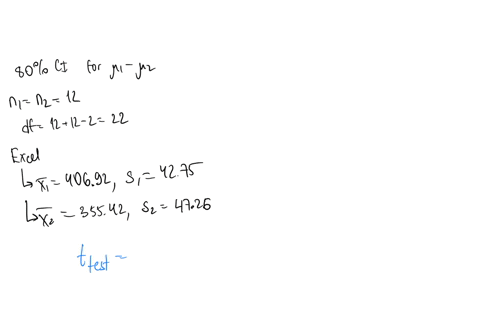 80% CI for μ1-μ2
n1=n2=12
df=12+12-2=22
Excel
↳ x̄1=406.92, S1=42.75
↳ x̄2=355.42, S2=47.26
t test =